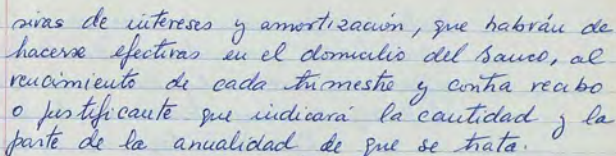 sivas de intereses y amortización, que habrán de
hacerse efectivas en el domicilio del Banco, al
vencimiento de cada trimestre y contra recibo
o justificante que indicará la cantidad y la
parte de la anualidad de que se trata.